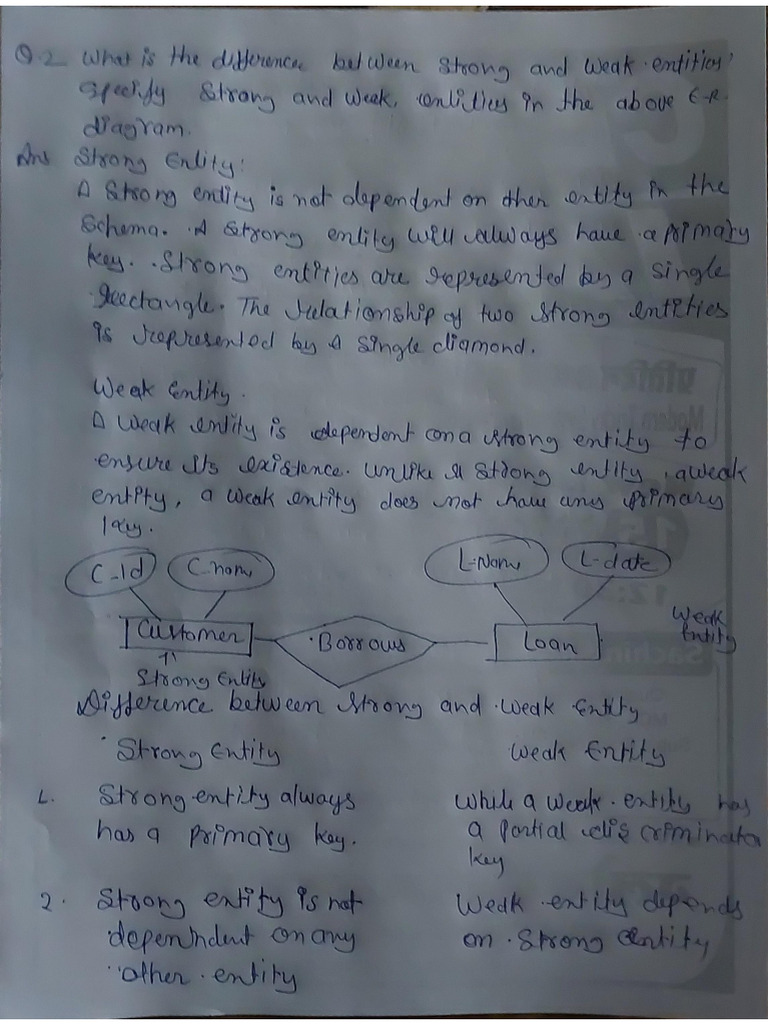 Q.2 What is the difference between Strong and Weak entities?
Specify Strong and Weak, entities in the above E-R.
diagram.
Ans Strong Entity:
A Strong entity is not dependent on other entity in the
Schema. A Strong entity will always have a primary
key. Strong entities are represented by a Single
Rectangle. The relationship of two Strong entities
is represented by A Single diamond.
Weak Entity.
A Weak entity is dependent on a strong entity to
ensure its existence. Unlike a Strong entity, a weak
entity, a weak entity does not have any primary
key.
C-Id C-name L-Name L-date
Customer Borrows Loan Weak
Entity
Strong Entity
Difference between Strong and Weak Entity
Strong Entity Weak Entity
1. Strong entity always While a Weak entity has
has a primary key. a partial discriminator
key
2. Strong entity is not Weak entity depends
depenindent on any on Strong entity
other entity